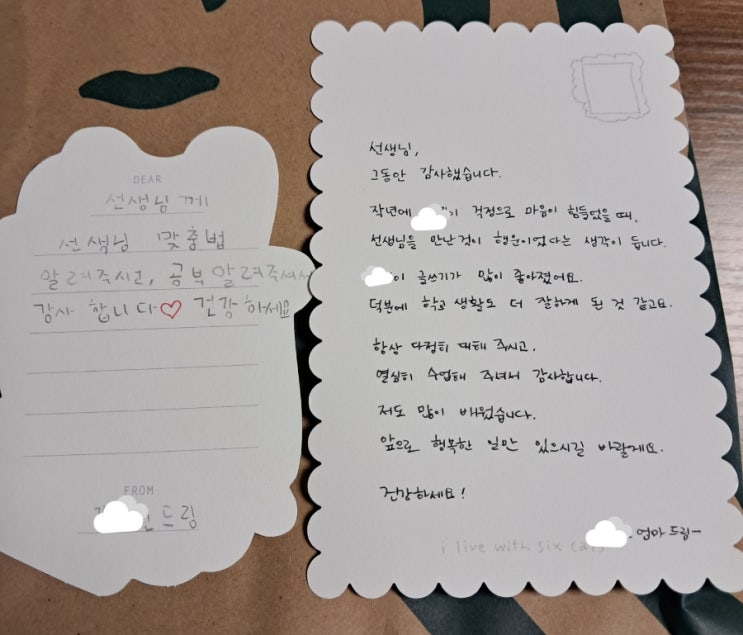 DEAR
선생님께
선생님 맞춤법
알려주시고, 공부 알려주셔서
감사 합니다♡ 건강하세요
FROM
드림
선생님,
그동안 감사했습니다.
작년에 걱정으로 마음이 힘들었을 때,
선생님을 만난것이 행운이었다는 생각이 듭니다.
이 글쓰기가 많이 좋아졌어요.
덕분에 학교 생활도 더 잘하게 된 것 같고요.
항상 다정히 대해 주시고,
열심히 수업해 주셔서 감사합니다.
저도 많이 배웠습니다.
앞으로 행복한 일만 있으시길 바랄게요.
건강하세요!
엄마 드림-
i live with six cats